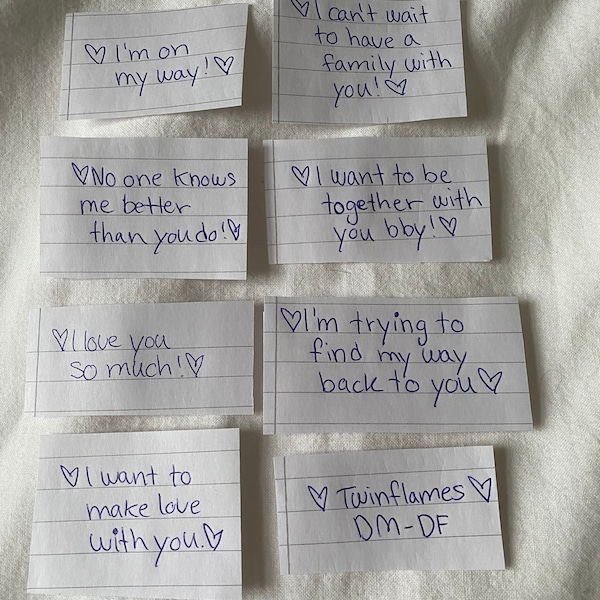 ♡ I'm on
my way! ♡
♡ I can't wait
to have a
family with
you! ♡
♡ No one knows
me better
than you do! ♡
♡ I want to be
together with
you bby! ♡
♡ I love you
so much! ♡
♡ I'm trying to
find my way
back to you ♡
♡ I want to
make love
with you. ♡
♡ Twinflames ♡
DM-DF